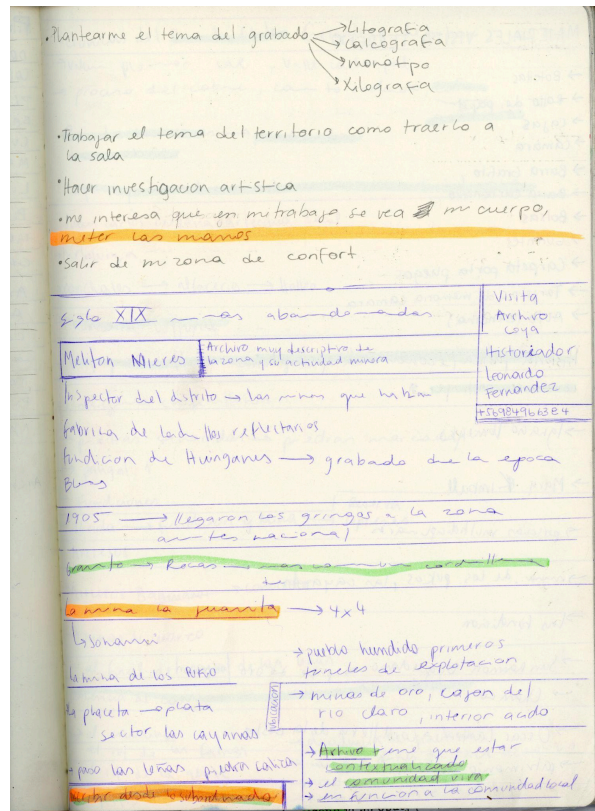 • Plantearme el tema del grabado → Litografia
→ Calcografia
→ monotpo
→ Xilografia
• Trabajar el tema del territorio como traerlo a
la sala
• Hacer investigacion artstica
• me interesa que en mi trabajo se vea mi cuerpo,
meter las manos
• Salir de mi zona de confort
Siglo XIX minas abandonadas
Visita
Archivo
Coya
Historiador
Leonardo
Fernandez
Meliton Mieres
Archivo muy descriptivo de
la zona y su actividad minera
Inspector del distrito → las minas que habian
Fabrica de ladrillos refractarios
Fundicion de Huinganes → grabado de la epoca
1905 → llegaron los gringos a la zona
antes nacional
Granito → Rocas mas comun cordillera
La mina la juanita → 4x4
↳ Sonami
la mina de los
→ pueblo hundido primeros
tuneles de explotacion
la placeta → plata
sector las cayanas
ubicacion
→ minas de oro, cajon del
rio claro, interior acido
→ paso las leñas, piedra caliza
desde lo subordinado
→ Archivo tiene que estar
contextualizado
→ el comunidad viva
→ en funcion a la comunidad local